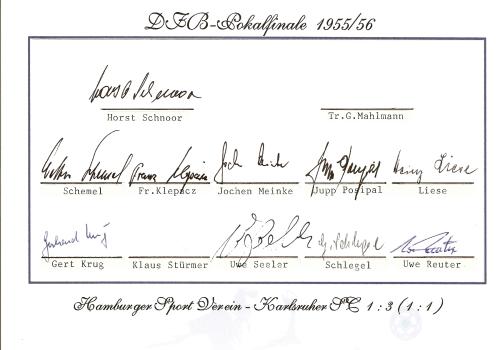 DFB-Pokalfinale 1955/56
Horst Schnoor
Horst Schnoor Tr.G.Mahlmann
Schemel Franz Klepacz Jochen Meinke Jupp Posipal Heinz Liese
Schemel Fr.Klepacz Jochen Meinke Jupp Posipal Liese
Gerhard Krug Schlegel Uwe Reuter
Gert Krug Klaus Stürmer Uwe Seeler Schlegel Uwe Reuter
Hamburger Sport Verein - Karlsruher SC 1:3 (1:1)